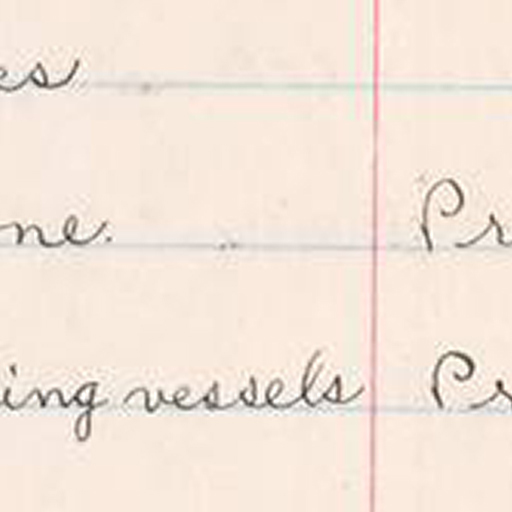 es
ne. Pr
ing vessels Pr